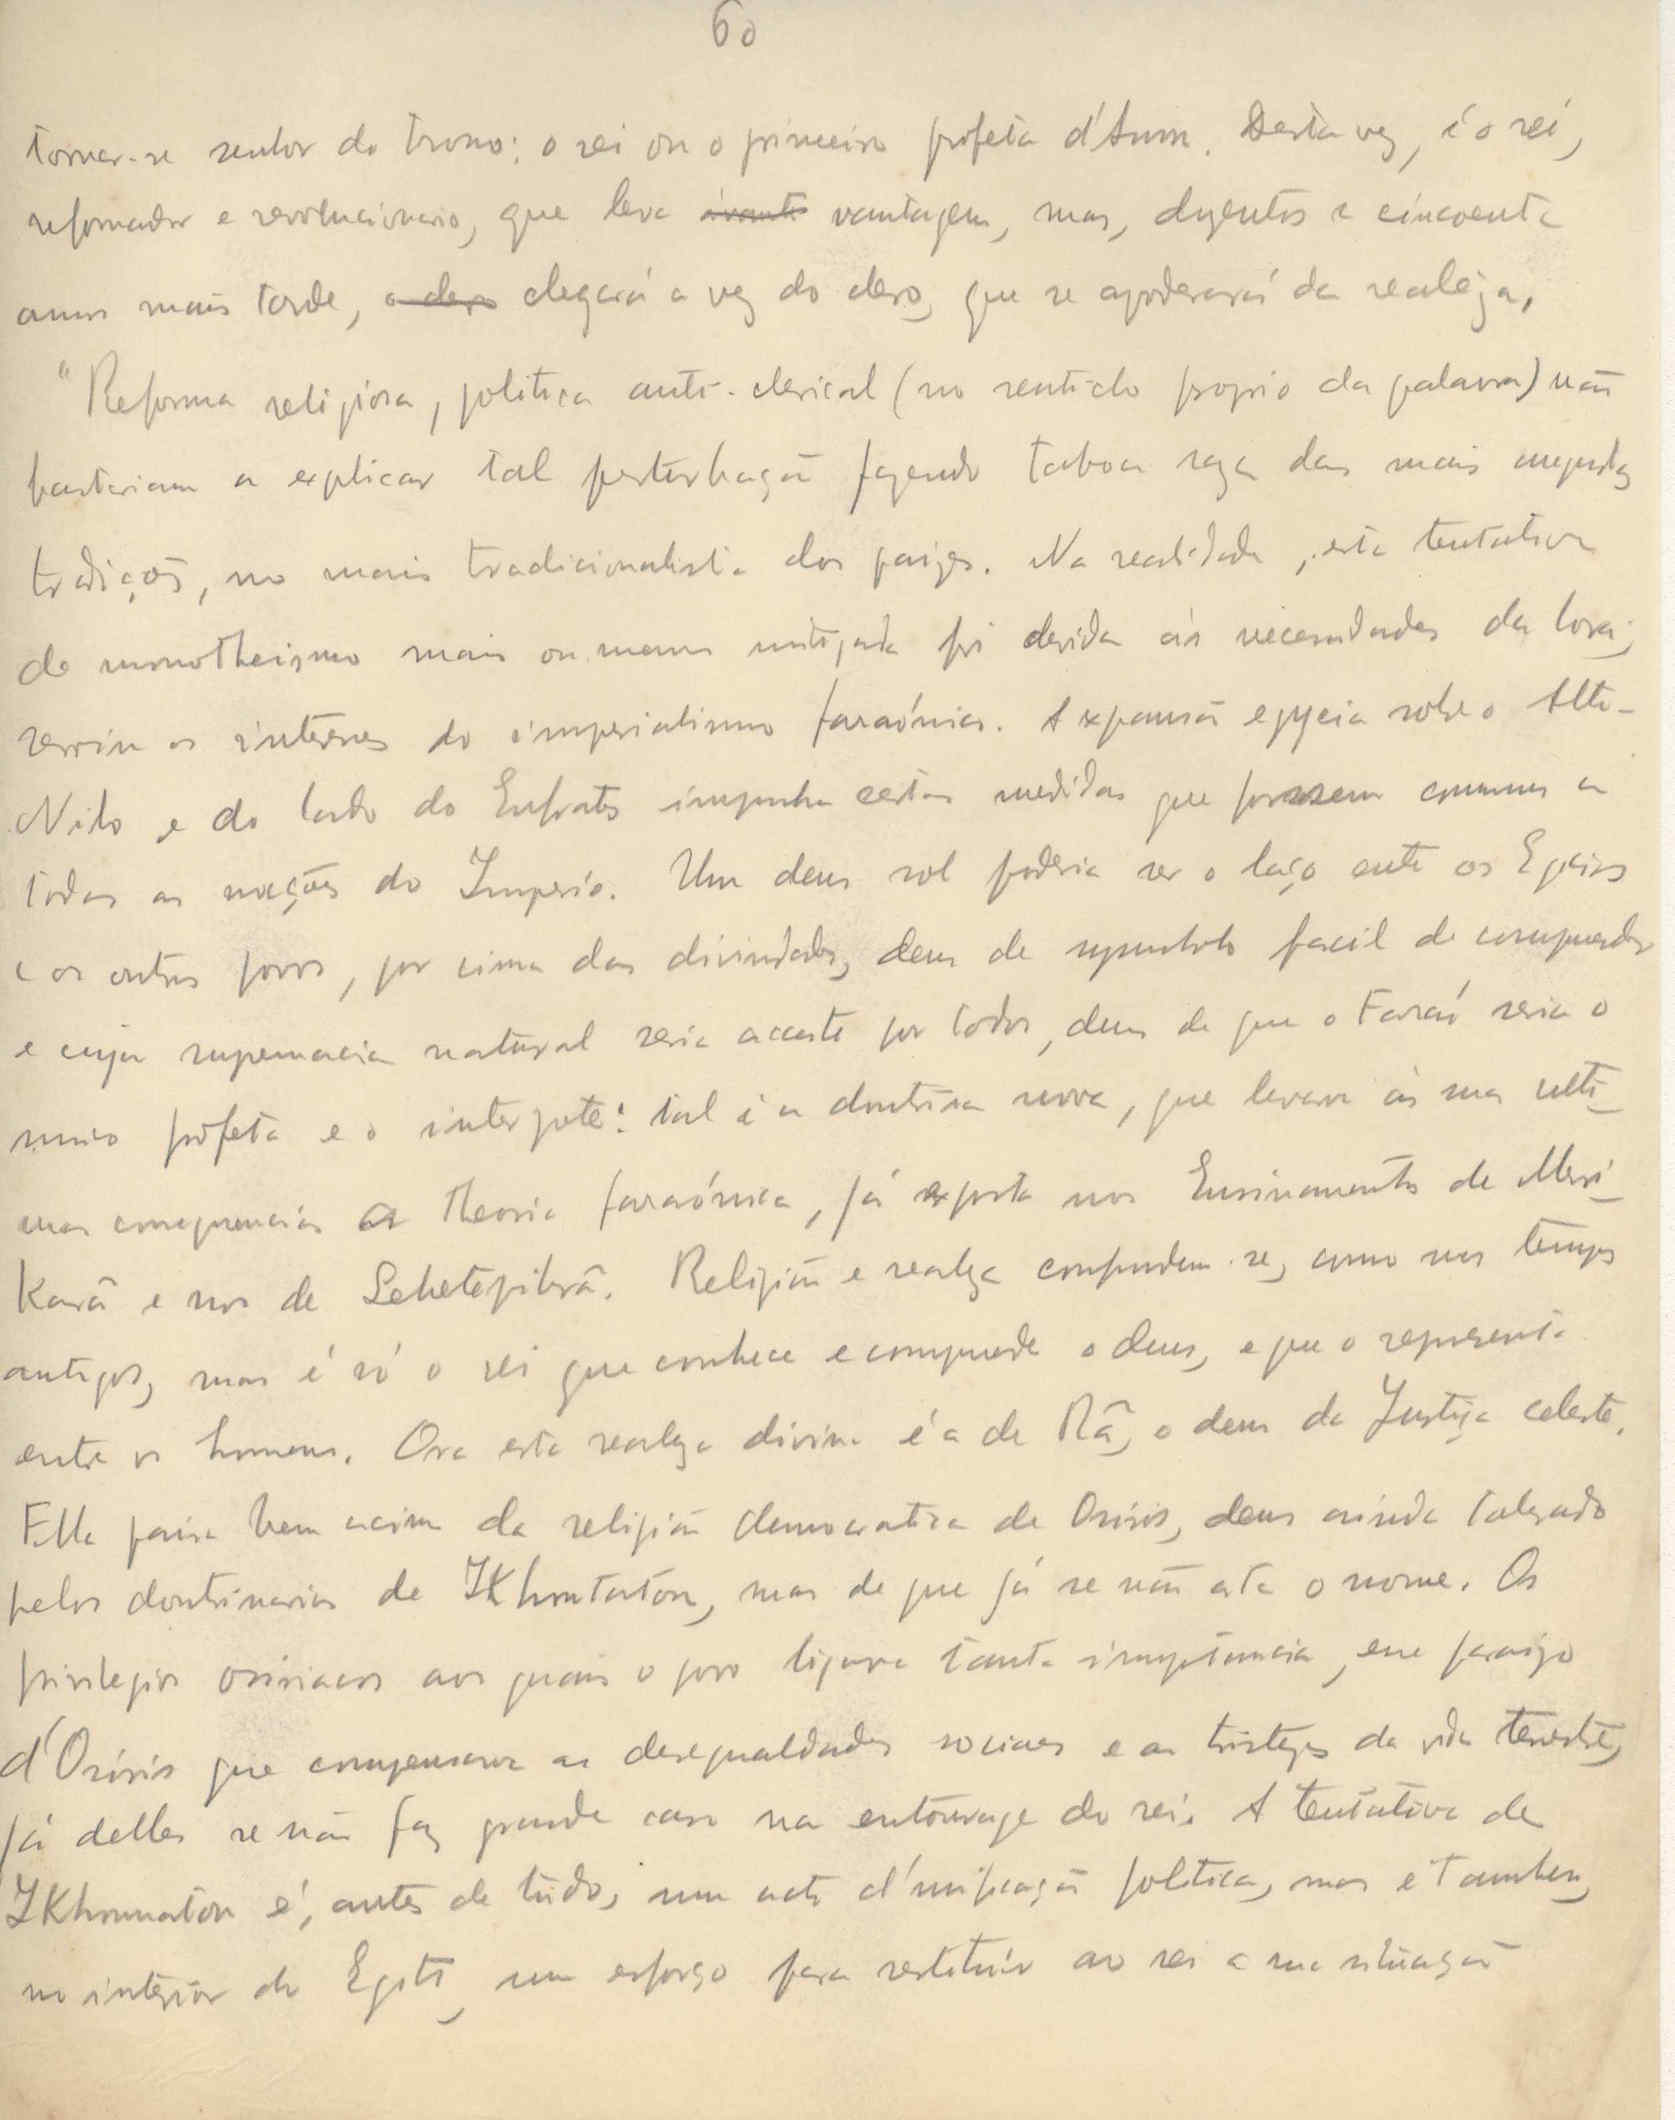 60
tornar-se senhor do trono: o rei ou o primeiro profeta d'Amm. Desta vez, é o rei,
reformador e revolucionario, que leva ávante vantagem, mas, duzentos e cincoenta
annos mais tarde, o clero chegará a vez do clero, que se apoderará da realeza.
"Reforma religiosa, politica anti-clerical (no sentido proprio da palavra) não
bastariam a explicar tal perturbação fazendo taboa raza das mais augustas
tradições, no mais tradicionalista dos paizes. Na realidade, esta tentativa
de monotheismo mais ou menos mitigada foi devida ás necessidades da hora;
serviu os interesses do imperialismo faraónico. A expansão egypcia sobre o Alto-
Nilo e do lado do Eufrates impunha certas medidas que fossem communs a
todas as nações do Imperio. Um deus sol poderia ser o laço entre os Egipcios
e os outros povos, por cima das divindades, deus de symbolo facil de comprehender
e cuja supremacia natural seria acceite por todos, deus de que o Faraó seria o
unico profeta e o interprete: tal é a doutrina nova, que levava ás suas ulti-
mas consequencias a theoria faraónica, já exposta nos Ensinamentos de Meri-
Karâ e nos de Sehetepibrâ. Religião e realeza confundem-se, como nos tempos
antigos, mas é só o rei que conhece e comprende o deus, e que o representa
entre os homens. Ora esta realeza divina é a de Râ, o deus da Justiça celeste.
Ella paira bem acima da religião democratica de Osiris, deus ainda tolerado
pelos doutrinarios de IKhoutaton, mas de que já se não cita o nome. Os
privilegios osiriacos aos quaes o povo ligava tanta importancia, esse paraizo
d'Osiris que compensava as desegualdades sociaes e as tristezas da vida terrestre,
já delles se não faz grande caso na entourage do rei. A tentativa de
IKhounaton é, antes de tudo, um acto d'unificação politica, mas é tambem,
no interior do Egito, um esforço para restituir ao rei a sua situação